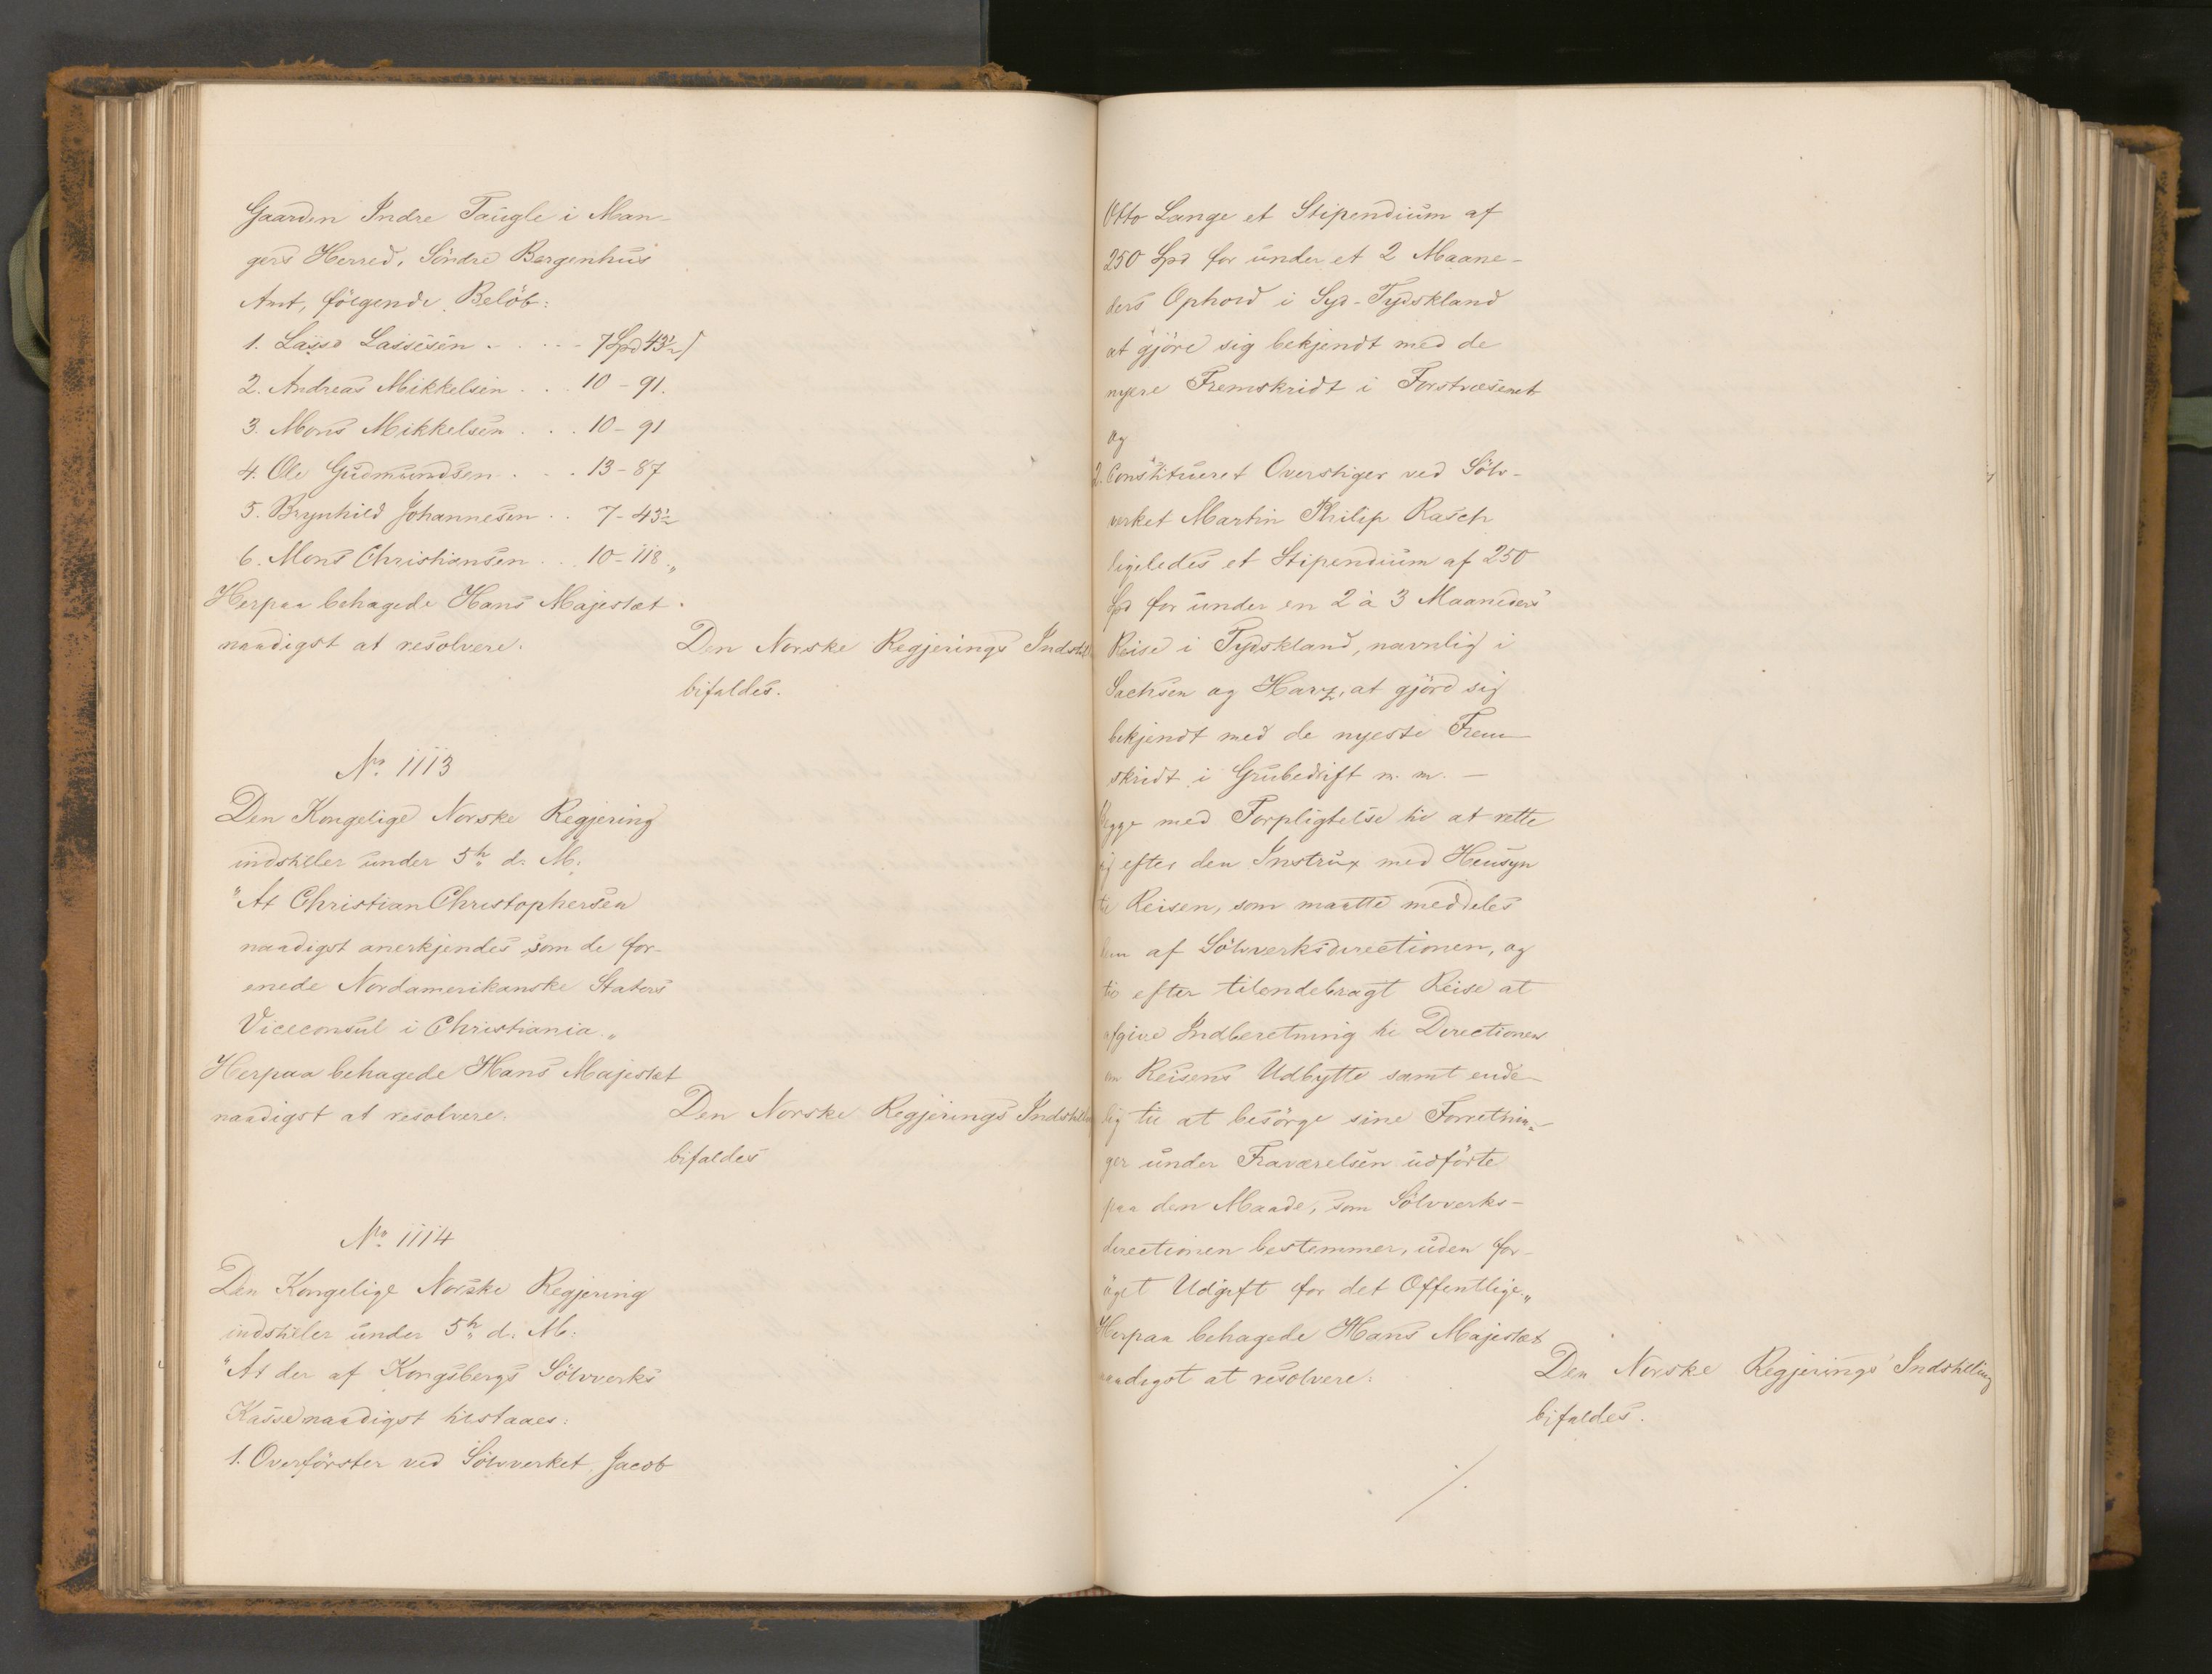 Gaarden Indre Taugle i Man-
gers Herred, Söndre Bergenhus
Amt, følgende Beløb:
1. Lasse Lassesen . . . . 7 Spd 43½ ß
2. Andreas Mikkelsen . . . 10 - 91.
3. Mons Mikkelsen . . . 10 - 91
4. Ole Gudmundsen . . . 13 - 87
5. Brynhild Johannesen . . 7 - 43½
6. Mons Christiansen . . . 10 - 118.„
Herpaa behagede Hans Majestæt
naadigst at resolvere:
Den Norske Regjerings Indstil
bifaldes.
No 1113
Den Kongelige Norske Regjering
indstiller under 5te d. M:
"At Christian Christophersen
naadigst anerkjendes som de for-
enede Nordamerikanske Staters
Viceconsul i Christiania„
Herpaa behagede Hans Majestæt
naadigst at resolvere:
Den Norske Regjerings Indstilling
bifaldes
No 1114
Den Kongelige Norske Regjering
indstiller under 5te d. M:
"At der af Kongsbergs Sölvverks
Kasse naadigst tilstaaes:
1. Overförster ved Sölvverket, Jacob
Otto Lange et Stipendium af
250 Spd for under et 2 Maane-
ders Ophold i Syd-Tydskland
at gjöre sig bekjendt med de
nyere Fremskridt i Forstvæsenet
og
2. Constitueret Overstiger ved Sölv-
verket Martin Philip Rasch
ligeledes et Stipendium af 250
Spd for under en 2 à 3 Maaneders
Reise i Tydskland, navnlig i
Sachsen og Harz, at gjöre sig
bekjendt med de nyeste Frem-
skridt i Grubedrift m. m. —
Begge med Forpligtelse til at rette
sig efter den Instrux med Hensyn
til Reisen, som maatte meddeles
dem af Sölvverksdirectionen, og
til efter tilendebragt Reise at
afgive Indberetning til Directionen
om Reisens Udbytte samt ende-
lig til at besörge sine Forretnin-
ger under Fraværelsen udförte
paa den Maade, som Sölvverks-
directionen bestemmer, uden for-
öget Udgift for det Offentlige„
Herpaa behagede Hans Majestæt
naadigst at resolvere:
Den Norske Regjerings Indstilling
bifaldes.
./.